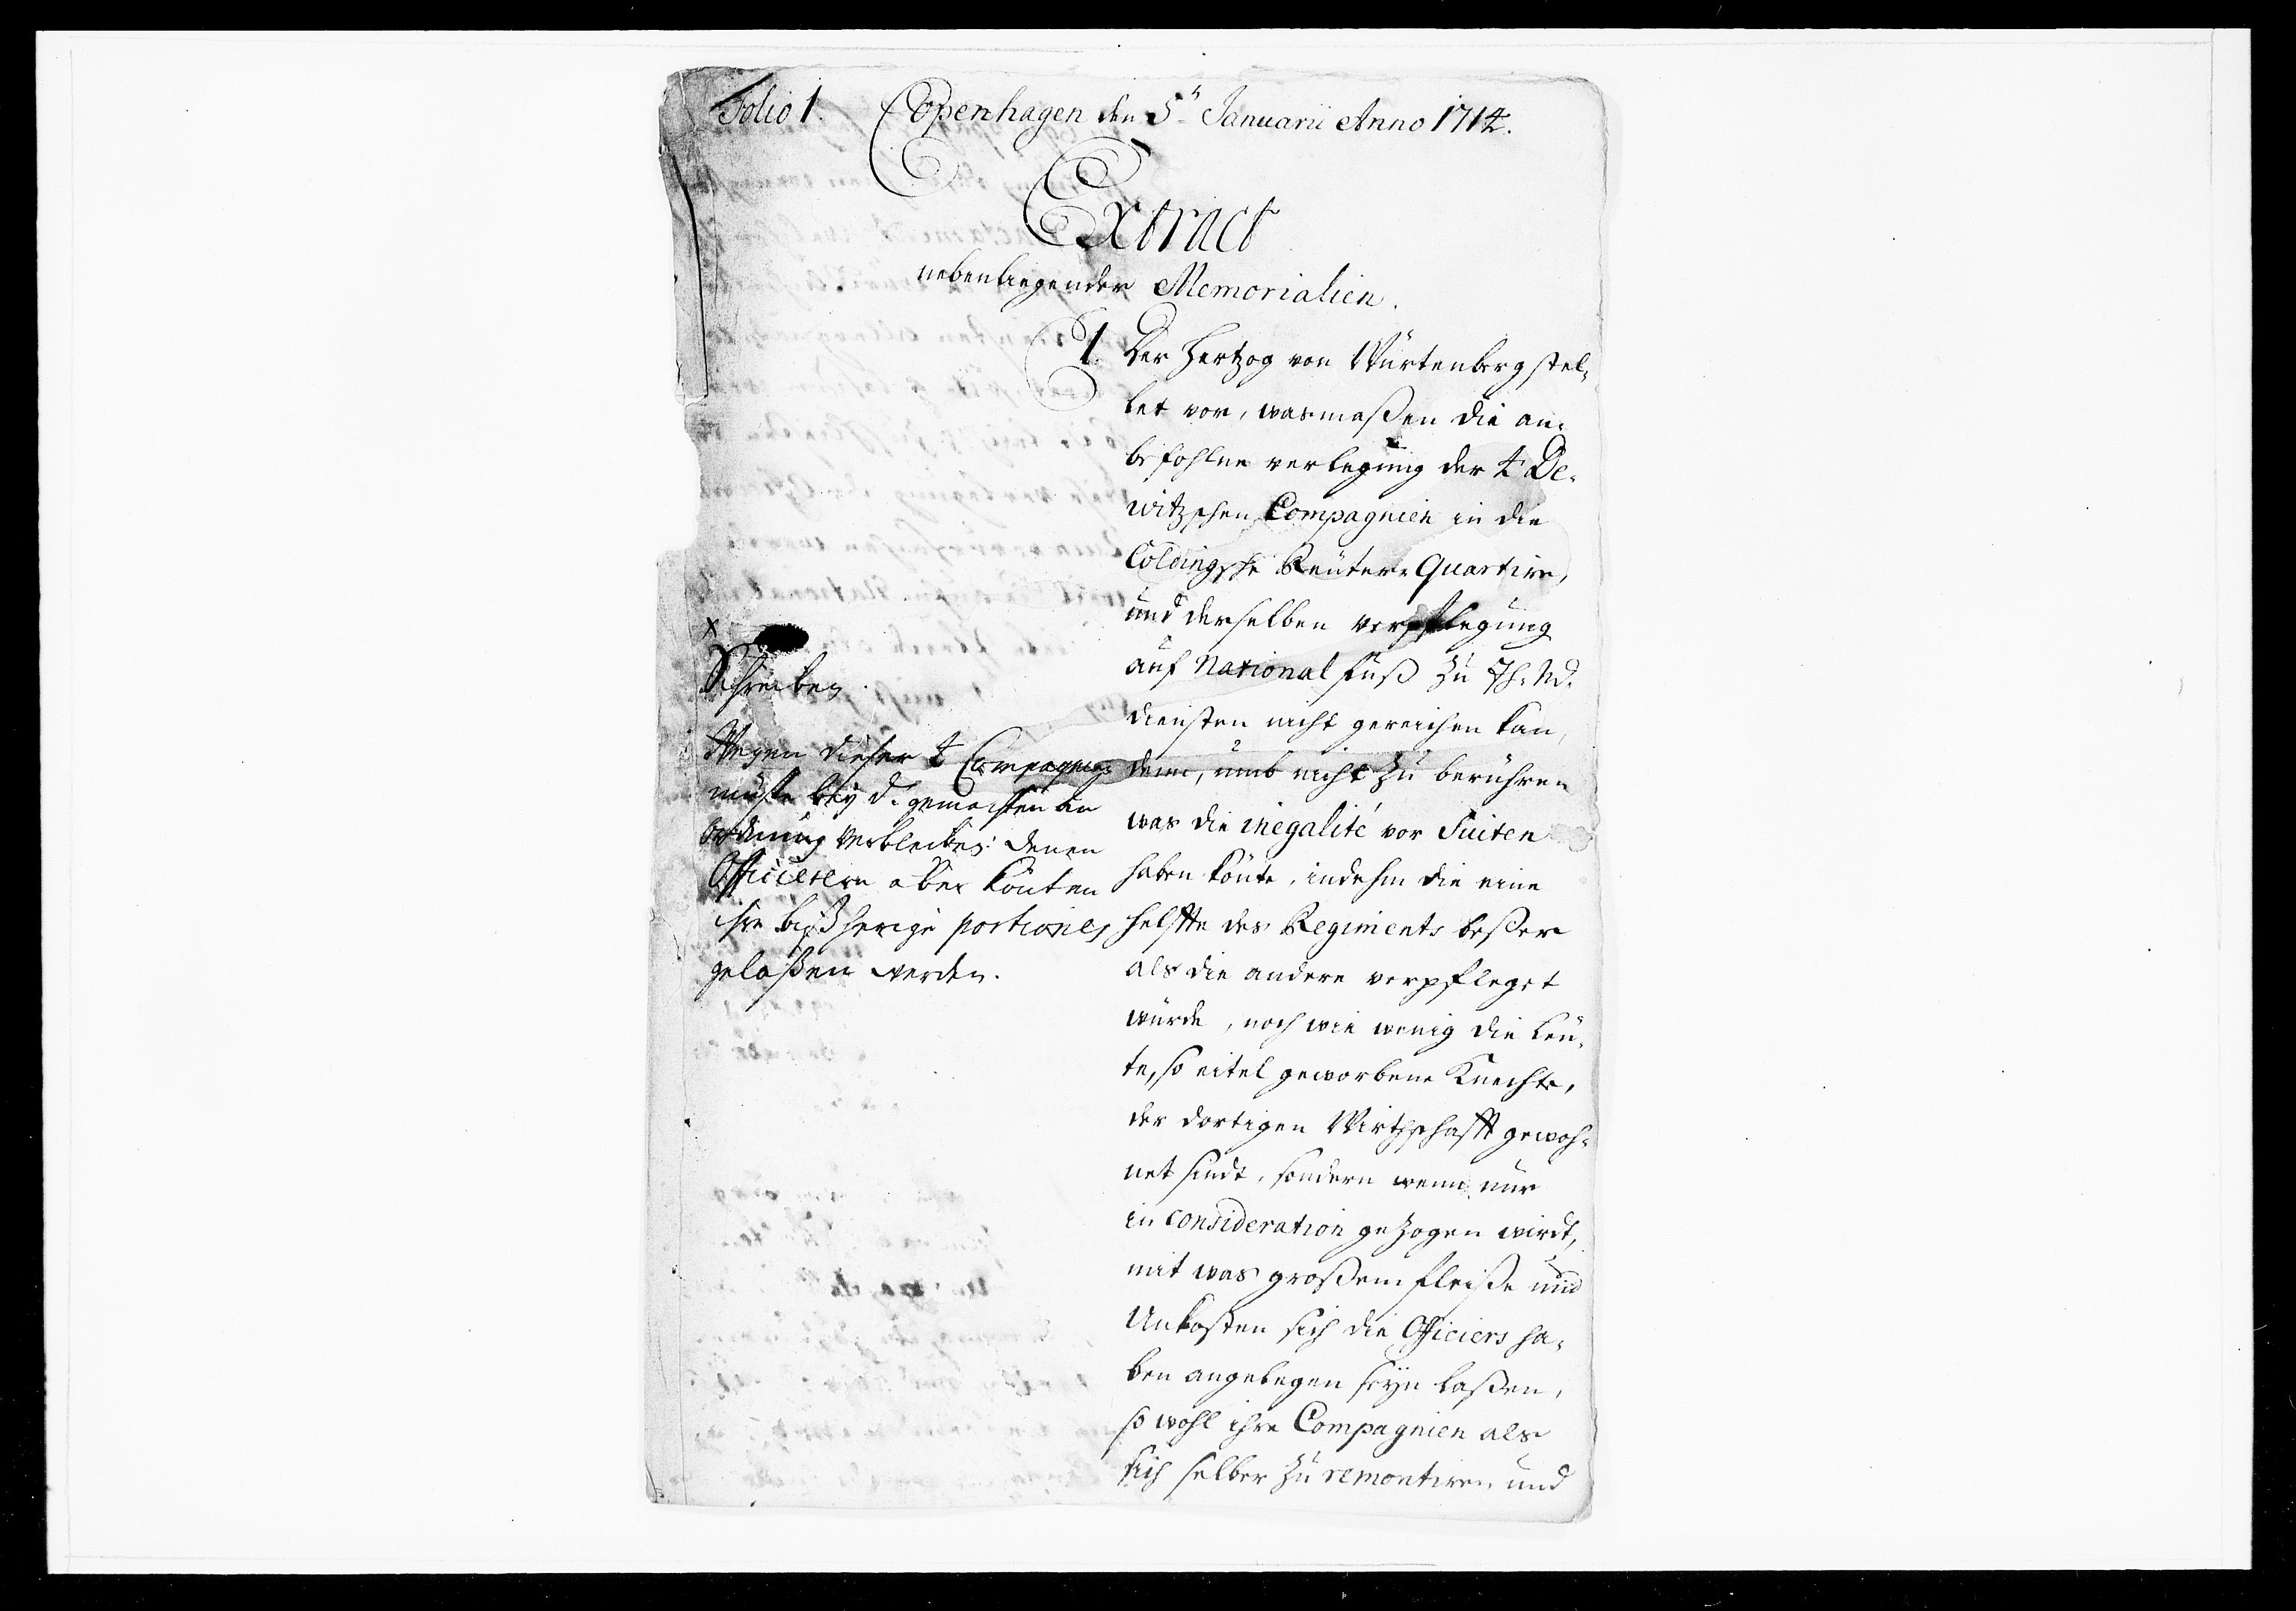 Folio 1. Copenhagen den 5ᵗ Januarii Anno 1714.
Extract
nebenliegender Memorialien.
1. Der Hertzog von Würtenberg stel-
let vor, wasmaßen die an-
befohlne verlegung der 4 De-
witzschen Compagnien in die
Coldingsche Reuter-Quartire,
und derselben verpflegung
auf National fuß zu Ih. Ad.
diensten nicht gereichen kan,
denn, umb nicht zu berühren
was die inegalité vor Suiten
haben könte, indehm die eine
helffte des Regiments beßer
als die andere verpfleget
würde, noch wie wenig die Leu-
te, so eitel geworbene Knechte,
der dortigen Wirthschafft gewoh-
net sindt, sondern wenn nur
in consideration gezogen wirdt,
mit was großem fleiße und
Unkosten sich die Officiers ha-
ben angelegen seyn laßen,
so wohl ihre Compagnien als
sich selber zu remontiren und
x
Schreiben.
Wegen dieser 4 Compagnies
müste bey d. gemachten an
ordnung verbleiben: denen
Officiern aber könten
ihre bißherige portiones
gelaßen werden.